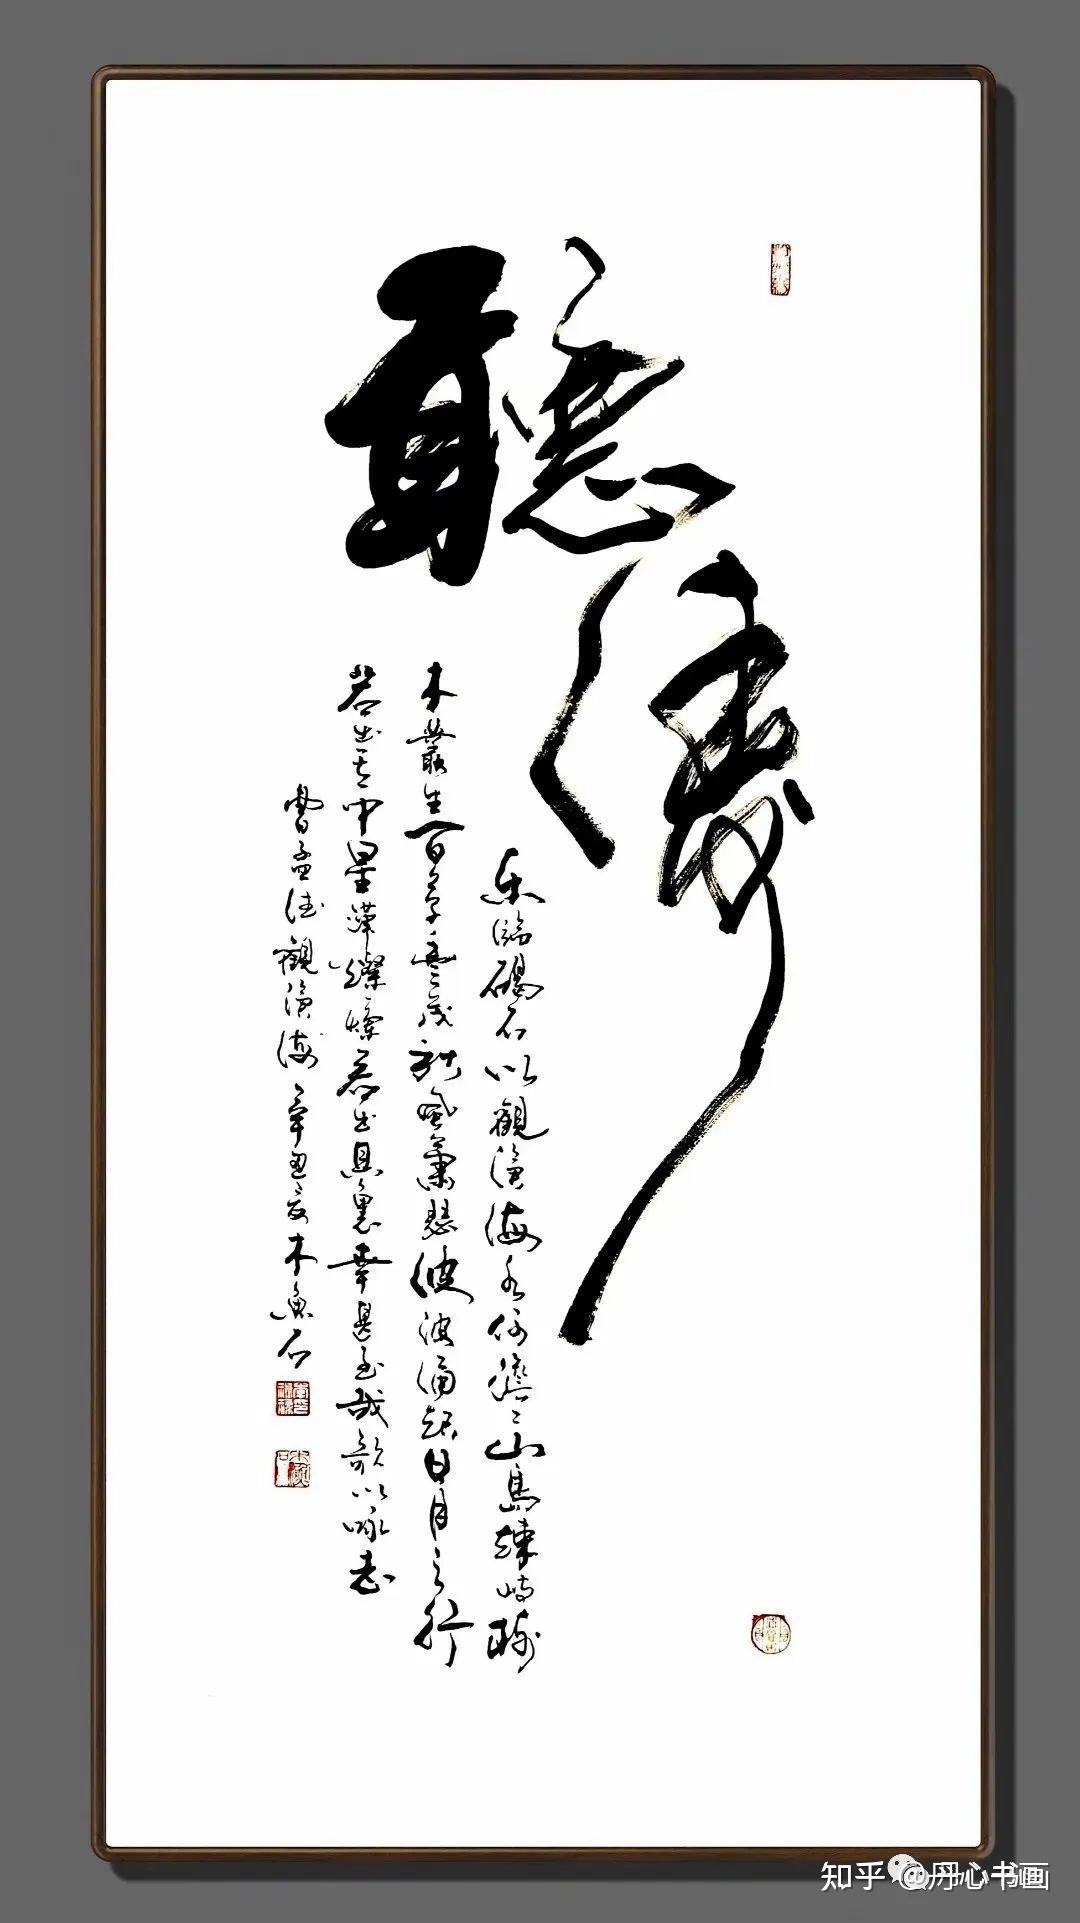 聽濤
东臨碣石以觀滄海水何澹〻山島竦峙樹
木叢生百草豐茂秋風蕭瑟洪波涌起日月之行
若出其中星漢燦爛若出其裏幸甚至哉歌以咏志
曹孟德觀滄海辛丑夏木魚石
知乎 @丹心书画